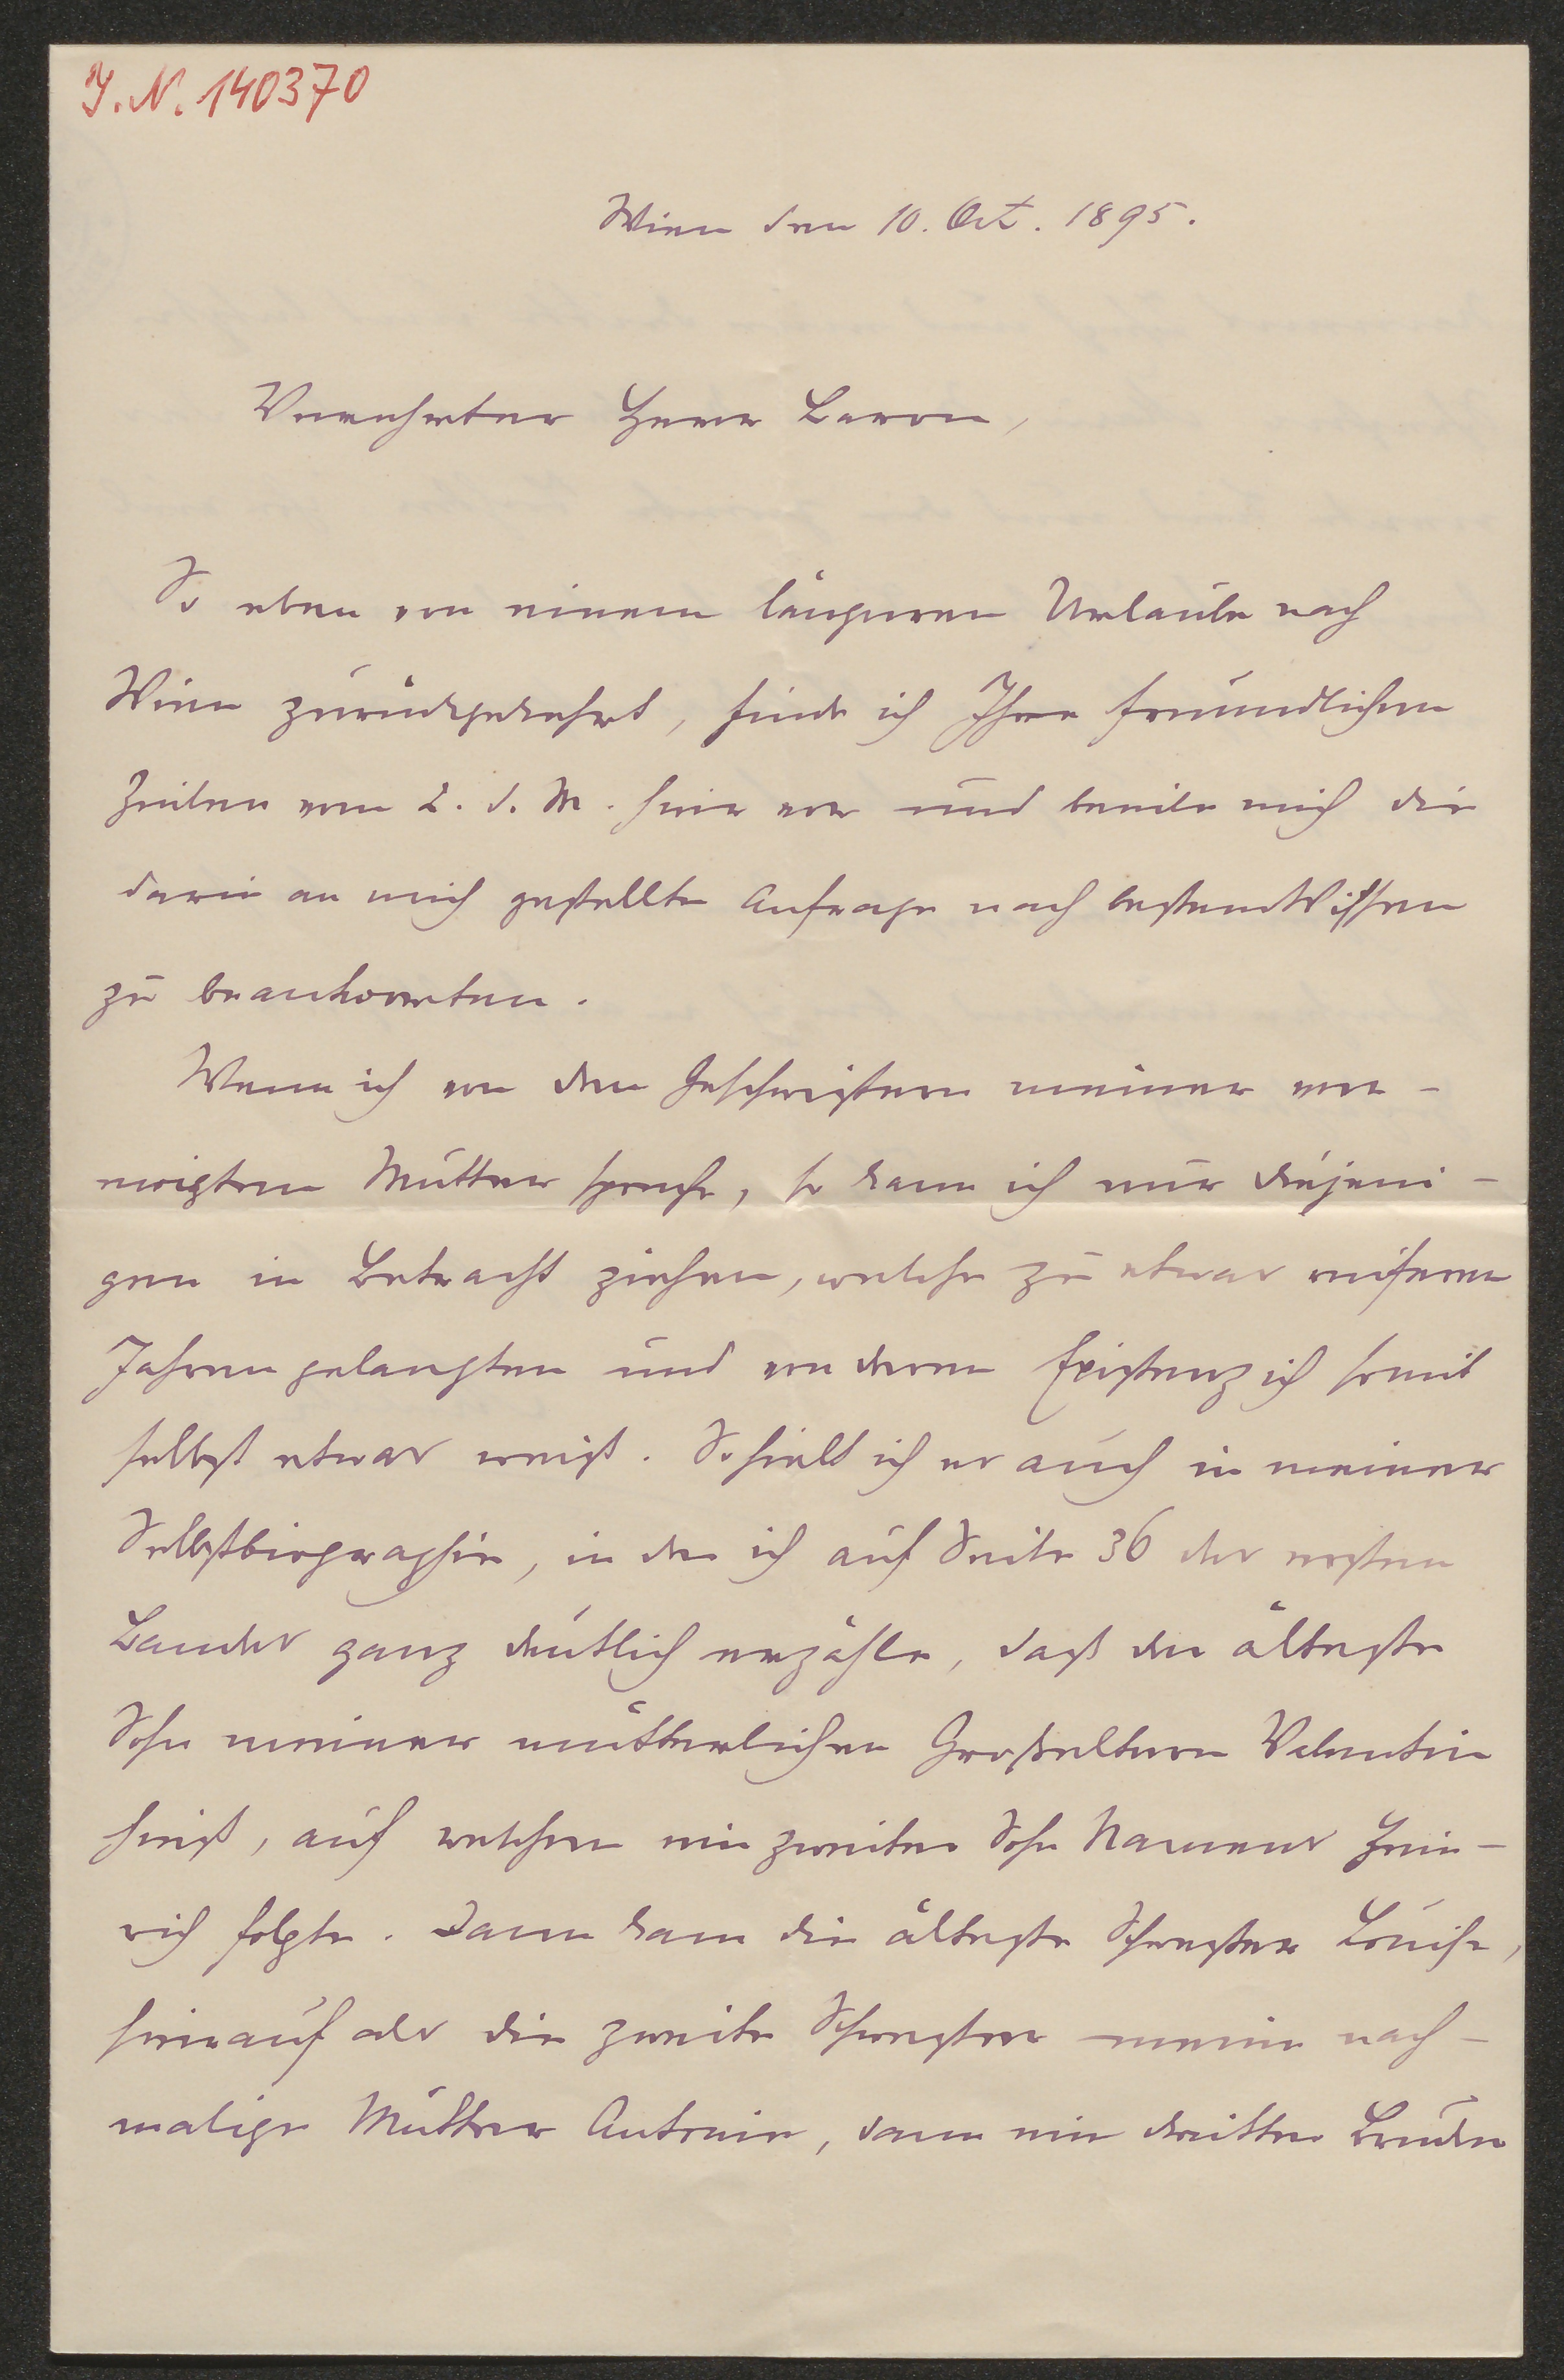 J. N. 140370
Wien den 10. Oct. 1895.
Verehrter Herr Baron,
So eben von einem längeren Urlaube nach
Wien zurückgekehrt, finde ich Ihre freundlichen
Zeilen vom 2. d. M. hier vor und beeile mich die
darin an mich gestellte Anfrage nach bestem Wissen
zu beantworten.
Wenn ich von den Geschwistern meiner ver-
ewigten Mutter spreche, so kann ich nur diejeni-
gen in Betracht ziehen, welche zu etwas reiferen
Jahren gelangten und von deren Existenz ich somit
selbst etwas weiß. So hielt ich es auch in meiner
Selbstbiographie, in der ich auf Seite 36 des ersten
Bandes ganz deutlich erzähle, daß der älteste
Sohn meiner mütterlichen Großeltern Valentin
hieß, auf welchen ein zweiter Sohn Namens Hein-
rich folgte. Dann kam die älteste Schwester Louise,
hierauf als die zweite Schwester meine nach-
malige Mutter Antonie, dann ein dritter Bruder